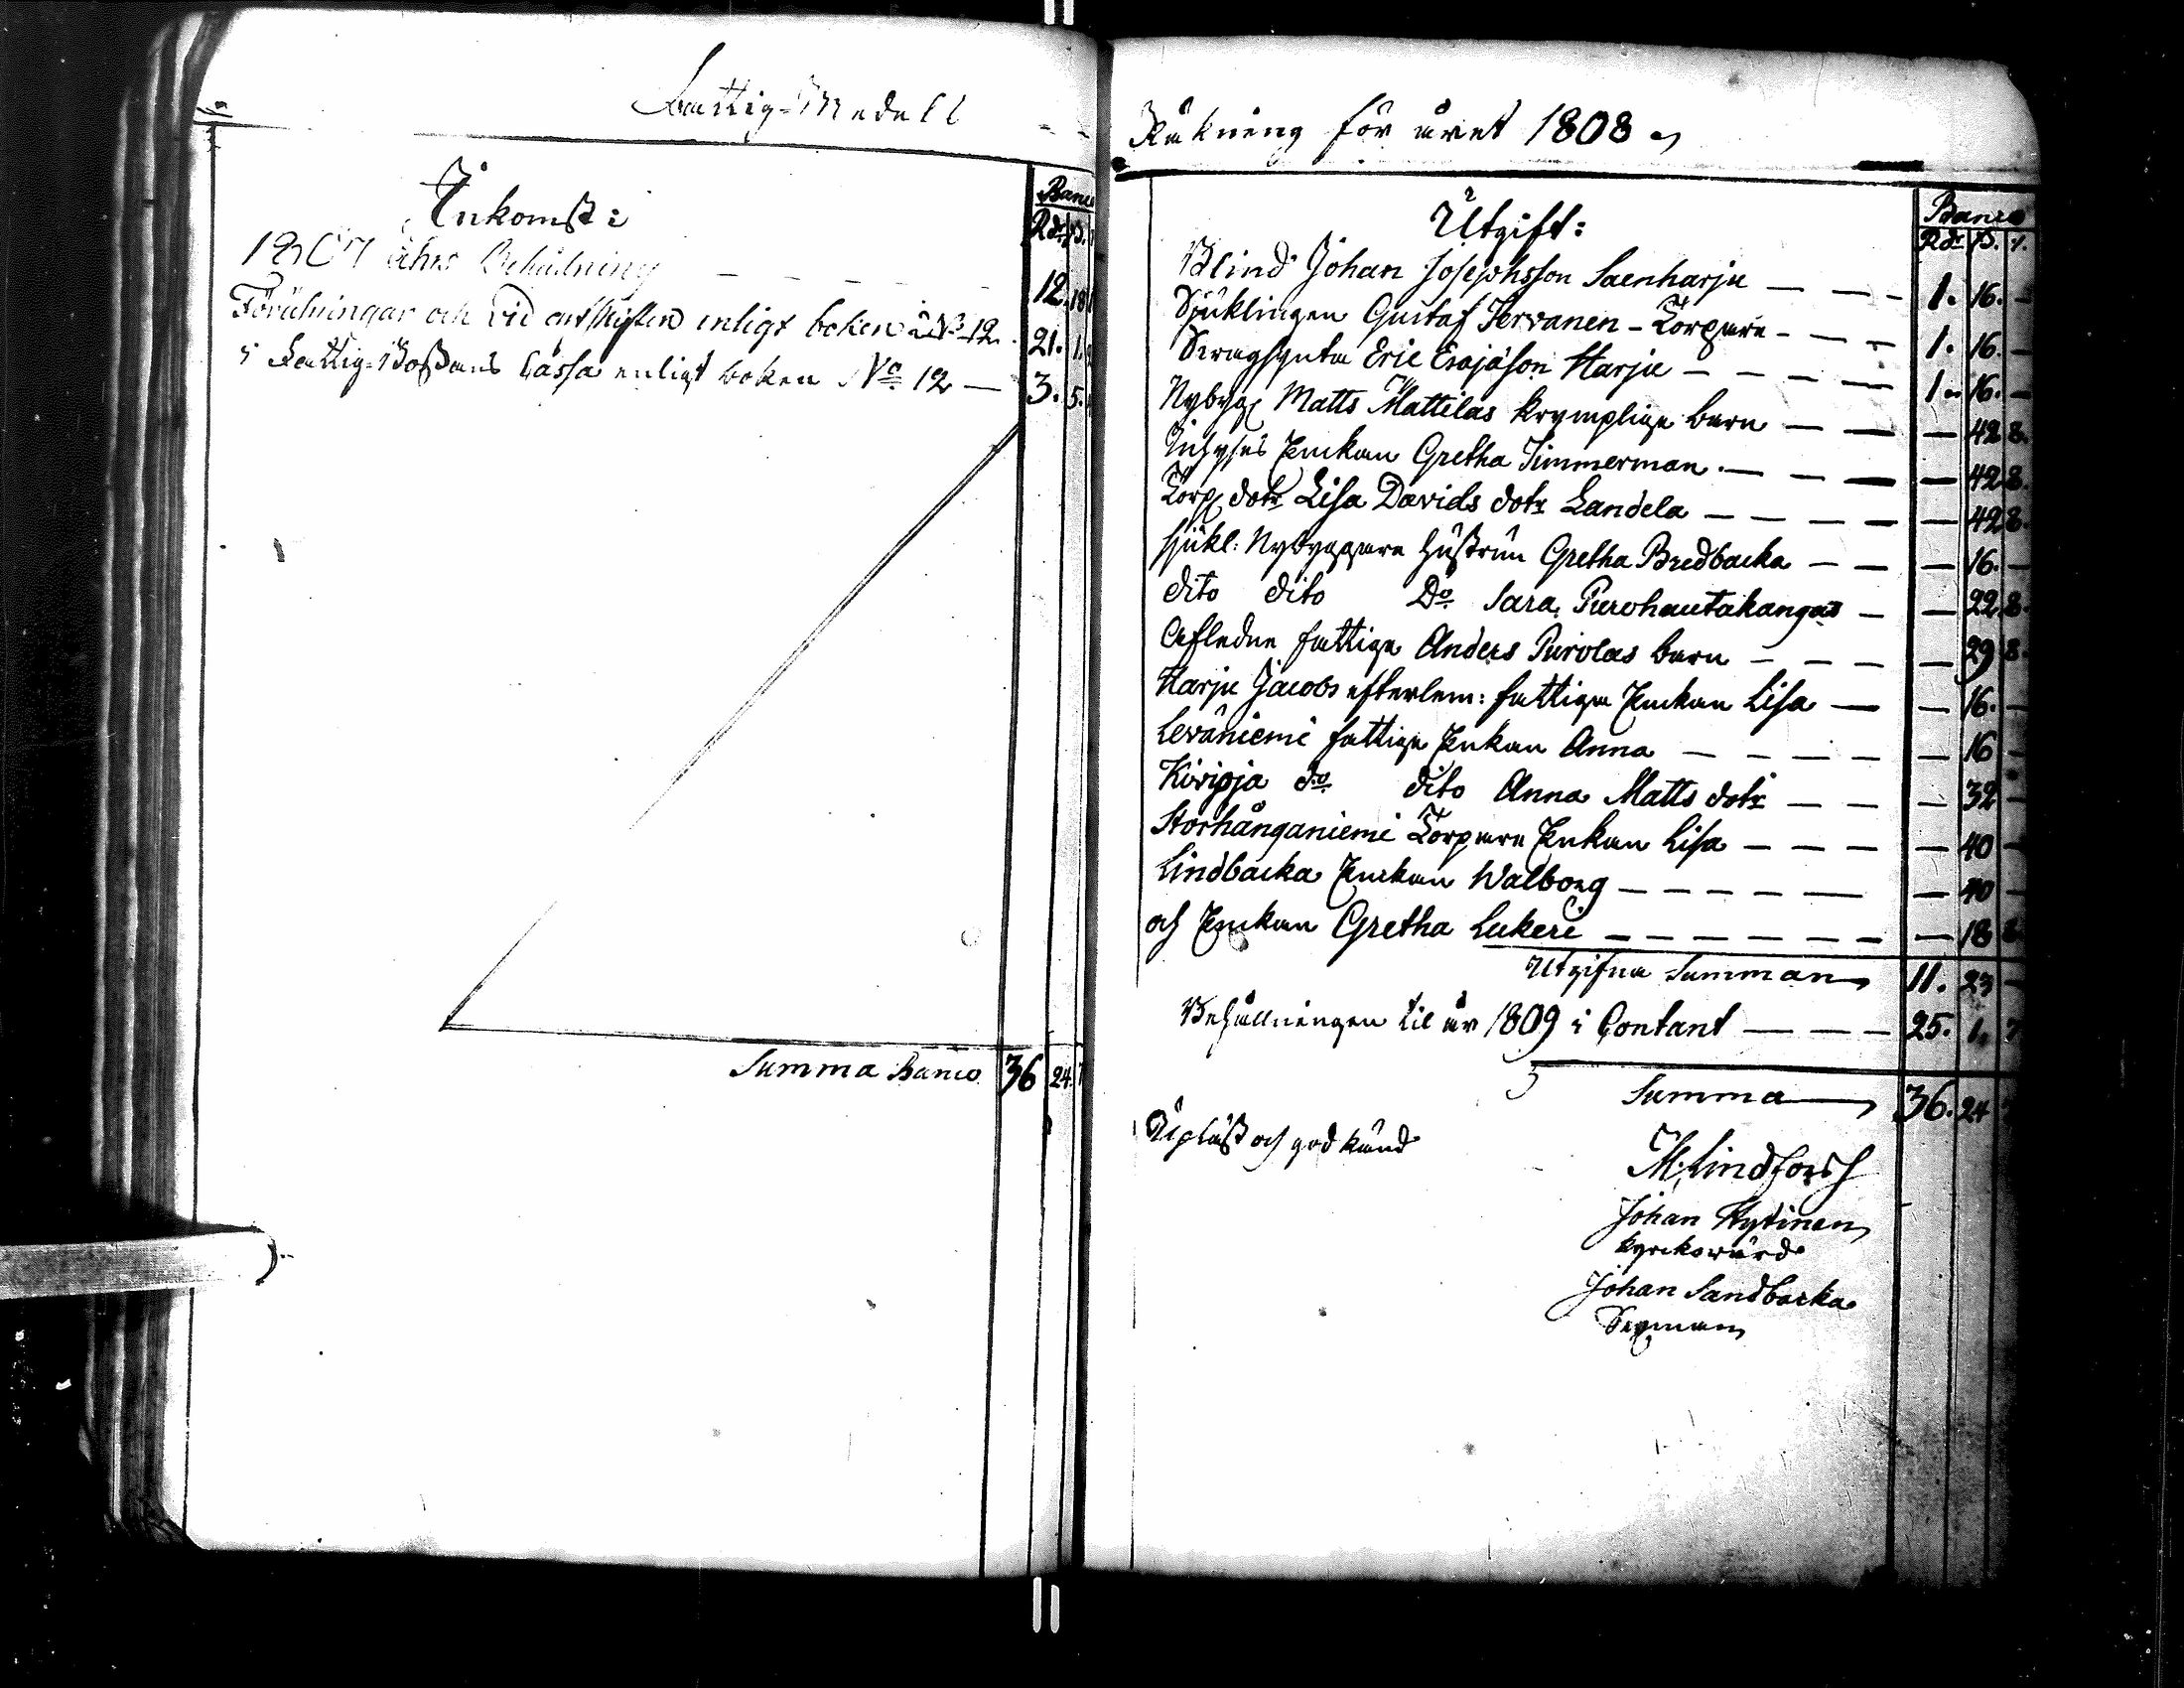 Fattig-Medell
Inkomst:
Banco
Rdr ß.
1807 åhrs Behållning 12. 18
Föräringar och vid enligt boken N:o 12. 21. 1.
i Fattig-Bössans Cassa enligt boken No 12 3. 5.
Summa Banco 36 24.
Räkning för året 1808
Utgift:
Banco
Rdr ß. r.
Blind Johan Josephsson Saenharju 1. 16. —
Sjuklingen Gustaf Tervanen - Torpare 1. 16. —
Eric Harju 1. 16. —
Nybygg Matts Mattilas krymplige barn — 42 8.
Inhyses Enkan Gretha Timmerman — 42 8.
Torp dotr Lisa Davids dotr Landela — 42 8.
sjukl: Nybyggare hustrun Gretha Bredbacka — 16. —
dito dito Do Sara Purohautakangas — 22 8.
Afledne fattige Anders Purolas barn — 29 8.
Harju Jacobs efterlem: fattige Enkan Lisa — 16. —
Leväniemi fattige Enkan Anna — 16 —
Kiripja do dito Anna Matts dotr — 32 —
Storhånganiemi Torpare Enkan Lisa — 40 —
Lindbacka Enkan Walborg — 40 —
och Enkan Gretha Lukeri — 18 8
Utgifna Summan 11. 23 —
Behållningen til år 1809 i Contant 25. 1. 7
Summa 36. 24
Upläst och godkänd
M: Lindfors
Johan Hytinen
kyrckowärd
Johan Sandbacka
Sexman